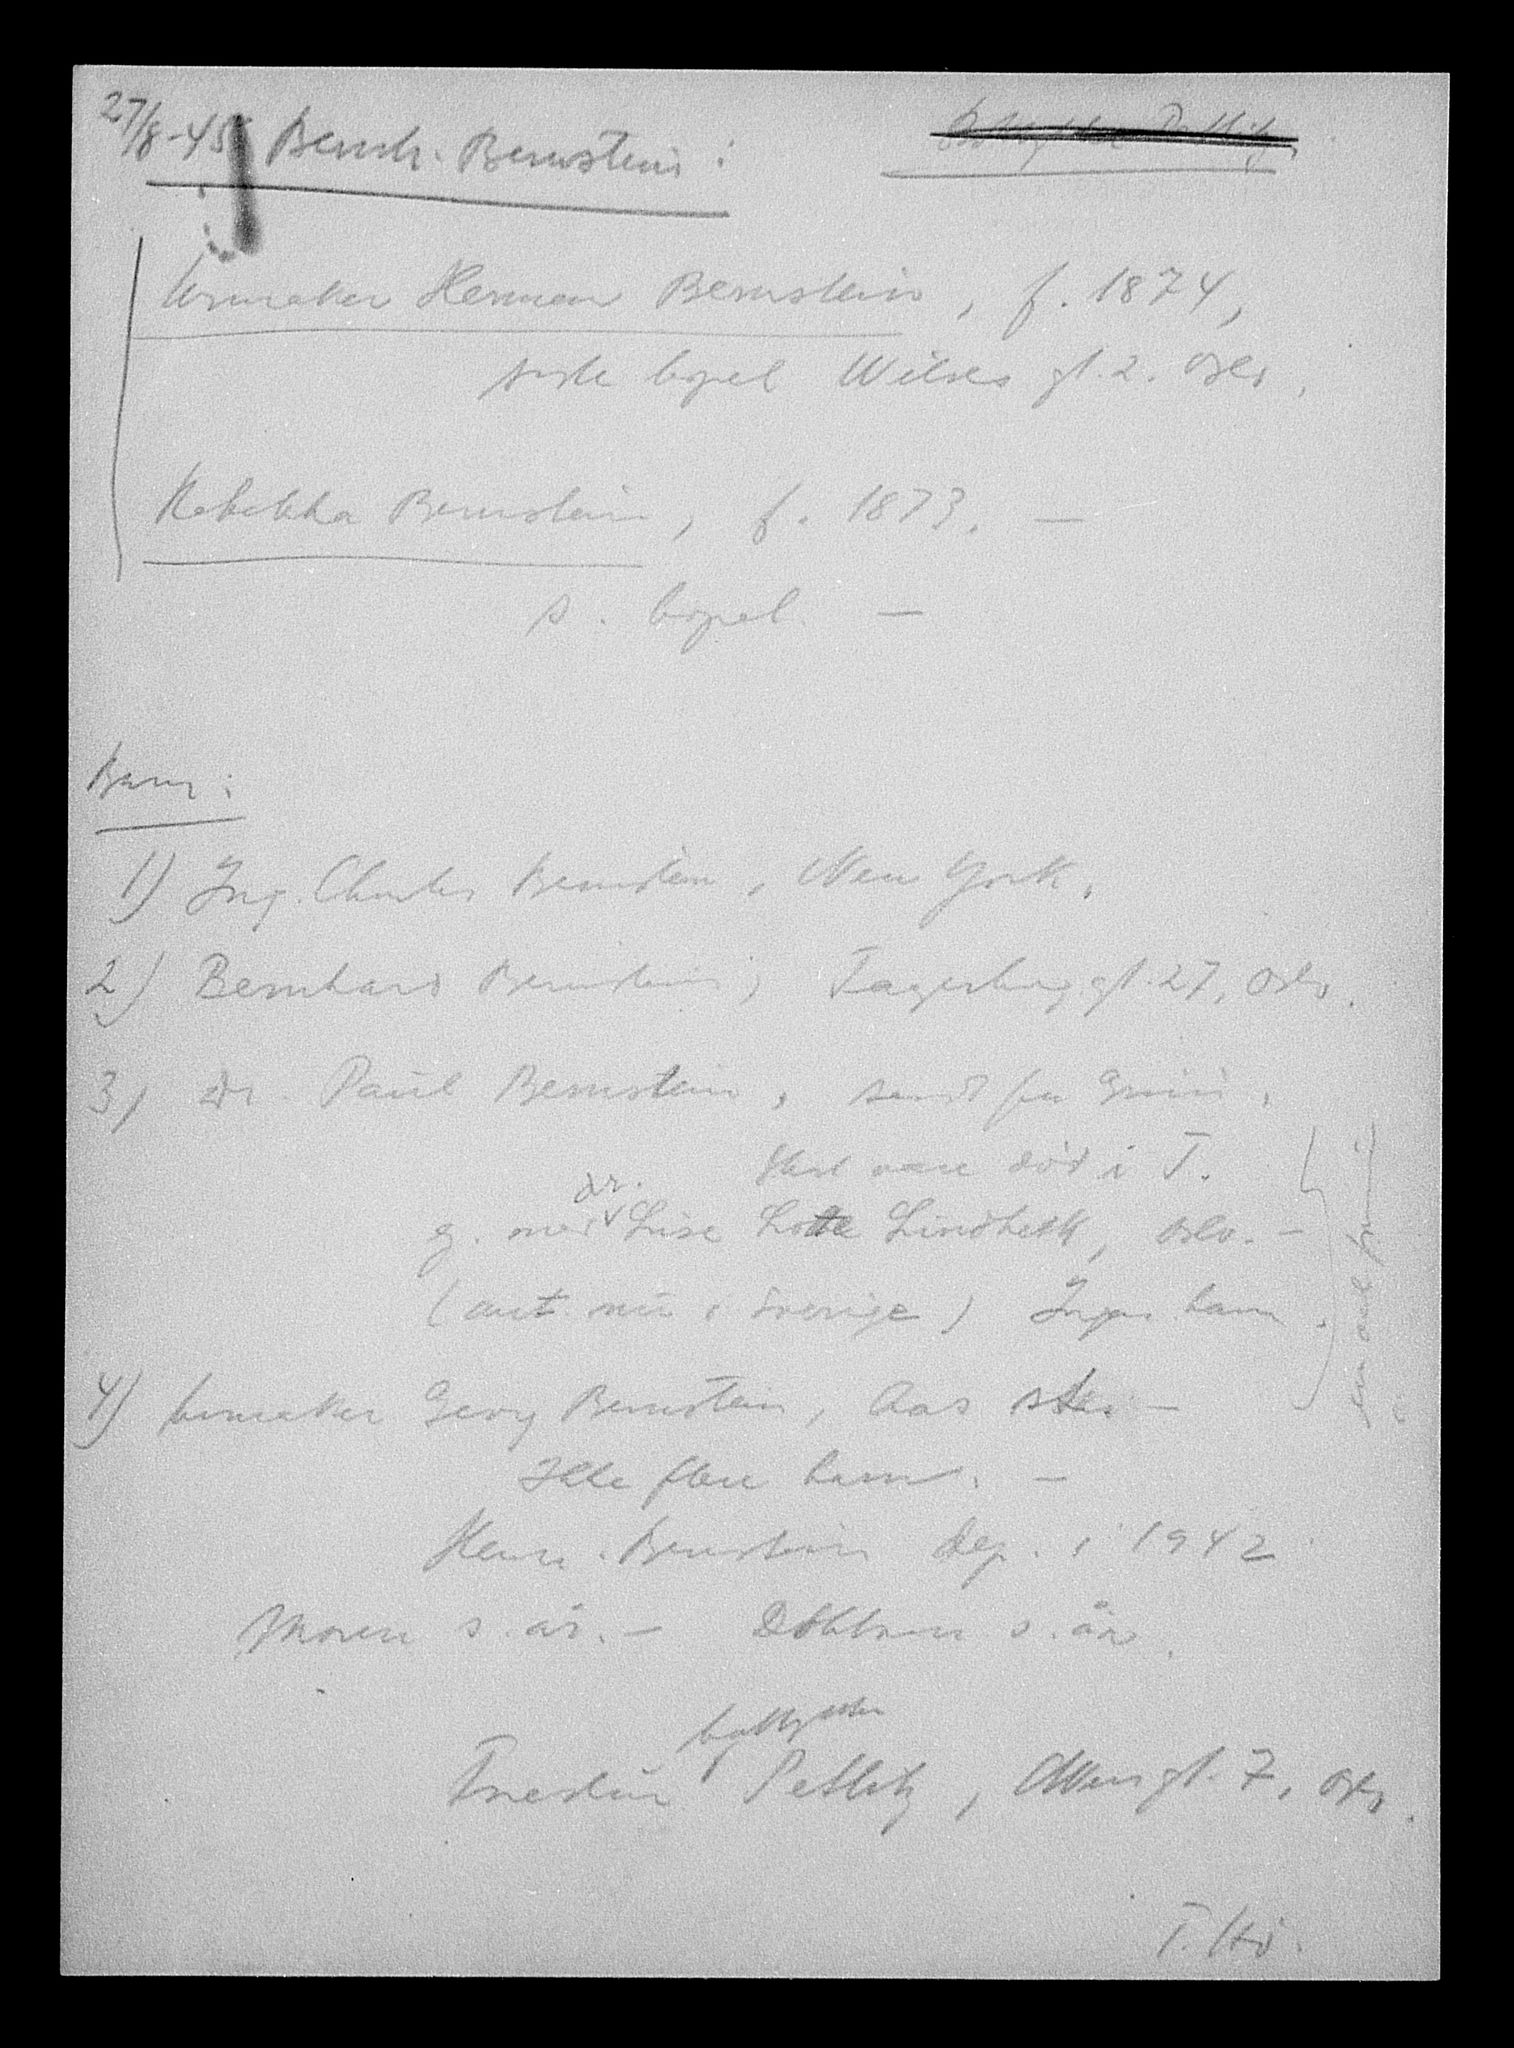 27/8-45 Bernh. Bernstein:
Urmaker Herman Bernstein, f. 1874,
siste bopel Wilses gt. 2. Oslo.
Rebekka Bernstein, f. 1873. —
s. bopel. —
Barn:
1) Ing. Charles Bernstein, New York.
2) Bernhard Bernstein, Fagerborg gt. 27, Oslo.
3) Dr. Paul Bernstein, sendt fra Grini.
Skal være død i T.
dr.
g. med Lise Lotte Lindbekk, Oslo. —
(ant. nu i Sverige) Ingen barn.
4) urmaker Georg Bernstein, Aas
Ikke flere barn. —
Herm. Bernstein dep. i 1942
Moren s. år. — s. år.
Petlitz, gt. 7, Oslo.